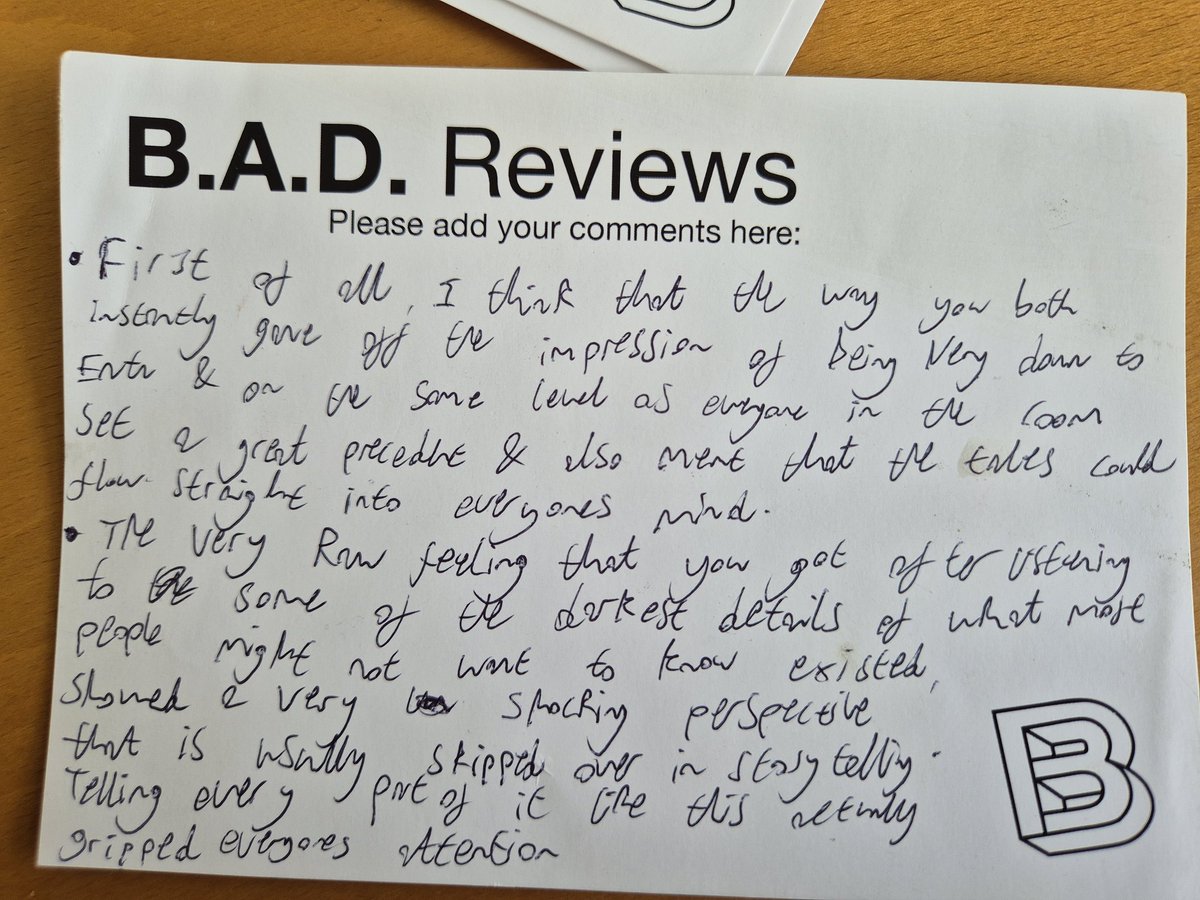 B.A.D. Reviews
Please add your comments here:
• First of all, I think that the way you both
instantly gave off the impression of being very down to
Earth & on the same level as everyone in the room
set a great precedent & also ment that the tales could
flow straight into everyones mind.
• The very Raw feeling that you got after listening
to some of the darkest details of what most
people might not want to know existed,
showed a very shocking perspective
that is usually skipped over in story telling.
Telling every part of it like this actually
gripped everyones attention
B